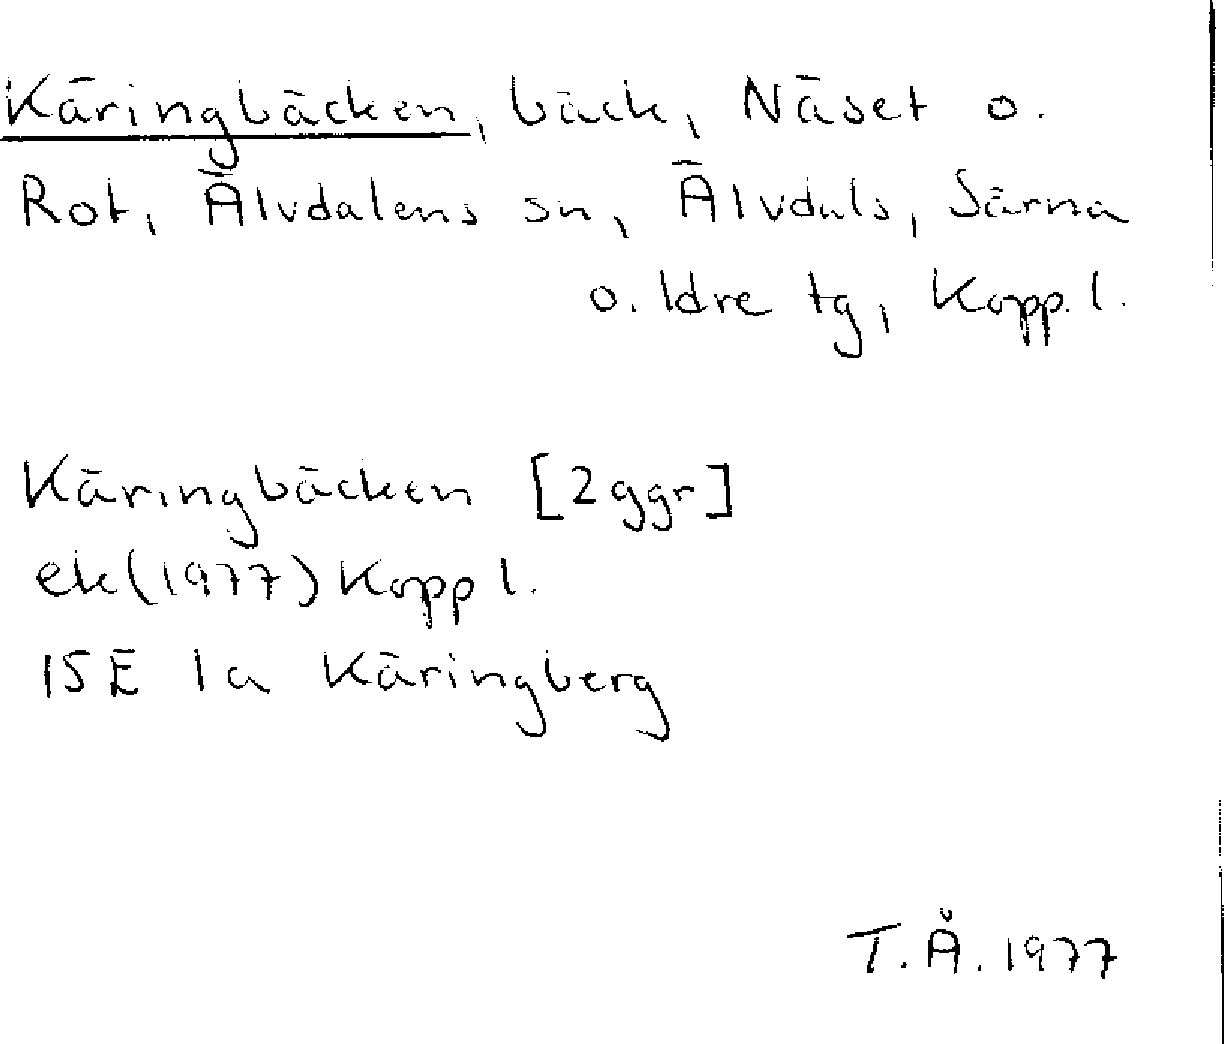 Käringbäcken, bäck, Näset o.
Rot, Älvdalens sn, Älvdals, Särna
o. Idre tg, Kopp. l.
Käringbäcken [2 ggr]
ek (1977) Kopp l.
15E 1a Käringberg
T.Å. 1977